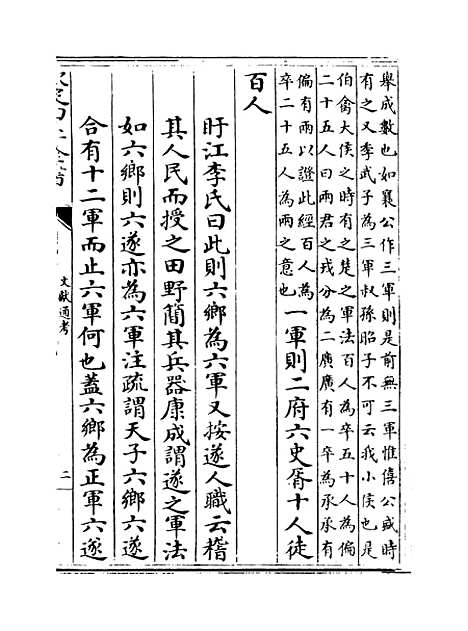 舉成數也如襄公作三軍則是前無三軍惟僖公盛時
有之又季武子為三軍叔孫昭子不可云我小侯也是
伯禽大侯之時有之楚之軍法百人為卒五十人為偏
二十五人曰兩君之戎分為二廣廣有一卒為承承有
偏有兩以證此經百人為
卒二十五人為兩之意也
一軍則二府六史胥十人徒
百人
盱江李氏曰此則六鄉為六軍又按遂人職云稽
其人民而授之田野簡其兵器康成謂遂之軍法
如六鄉則六遂亦為六軍注疏謂天子六鄉六遂
合有十二軍而止六軍何也蓋六鄉為正軍六遂
文獻通考
二